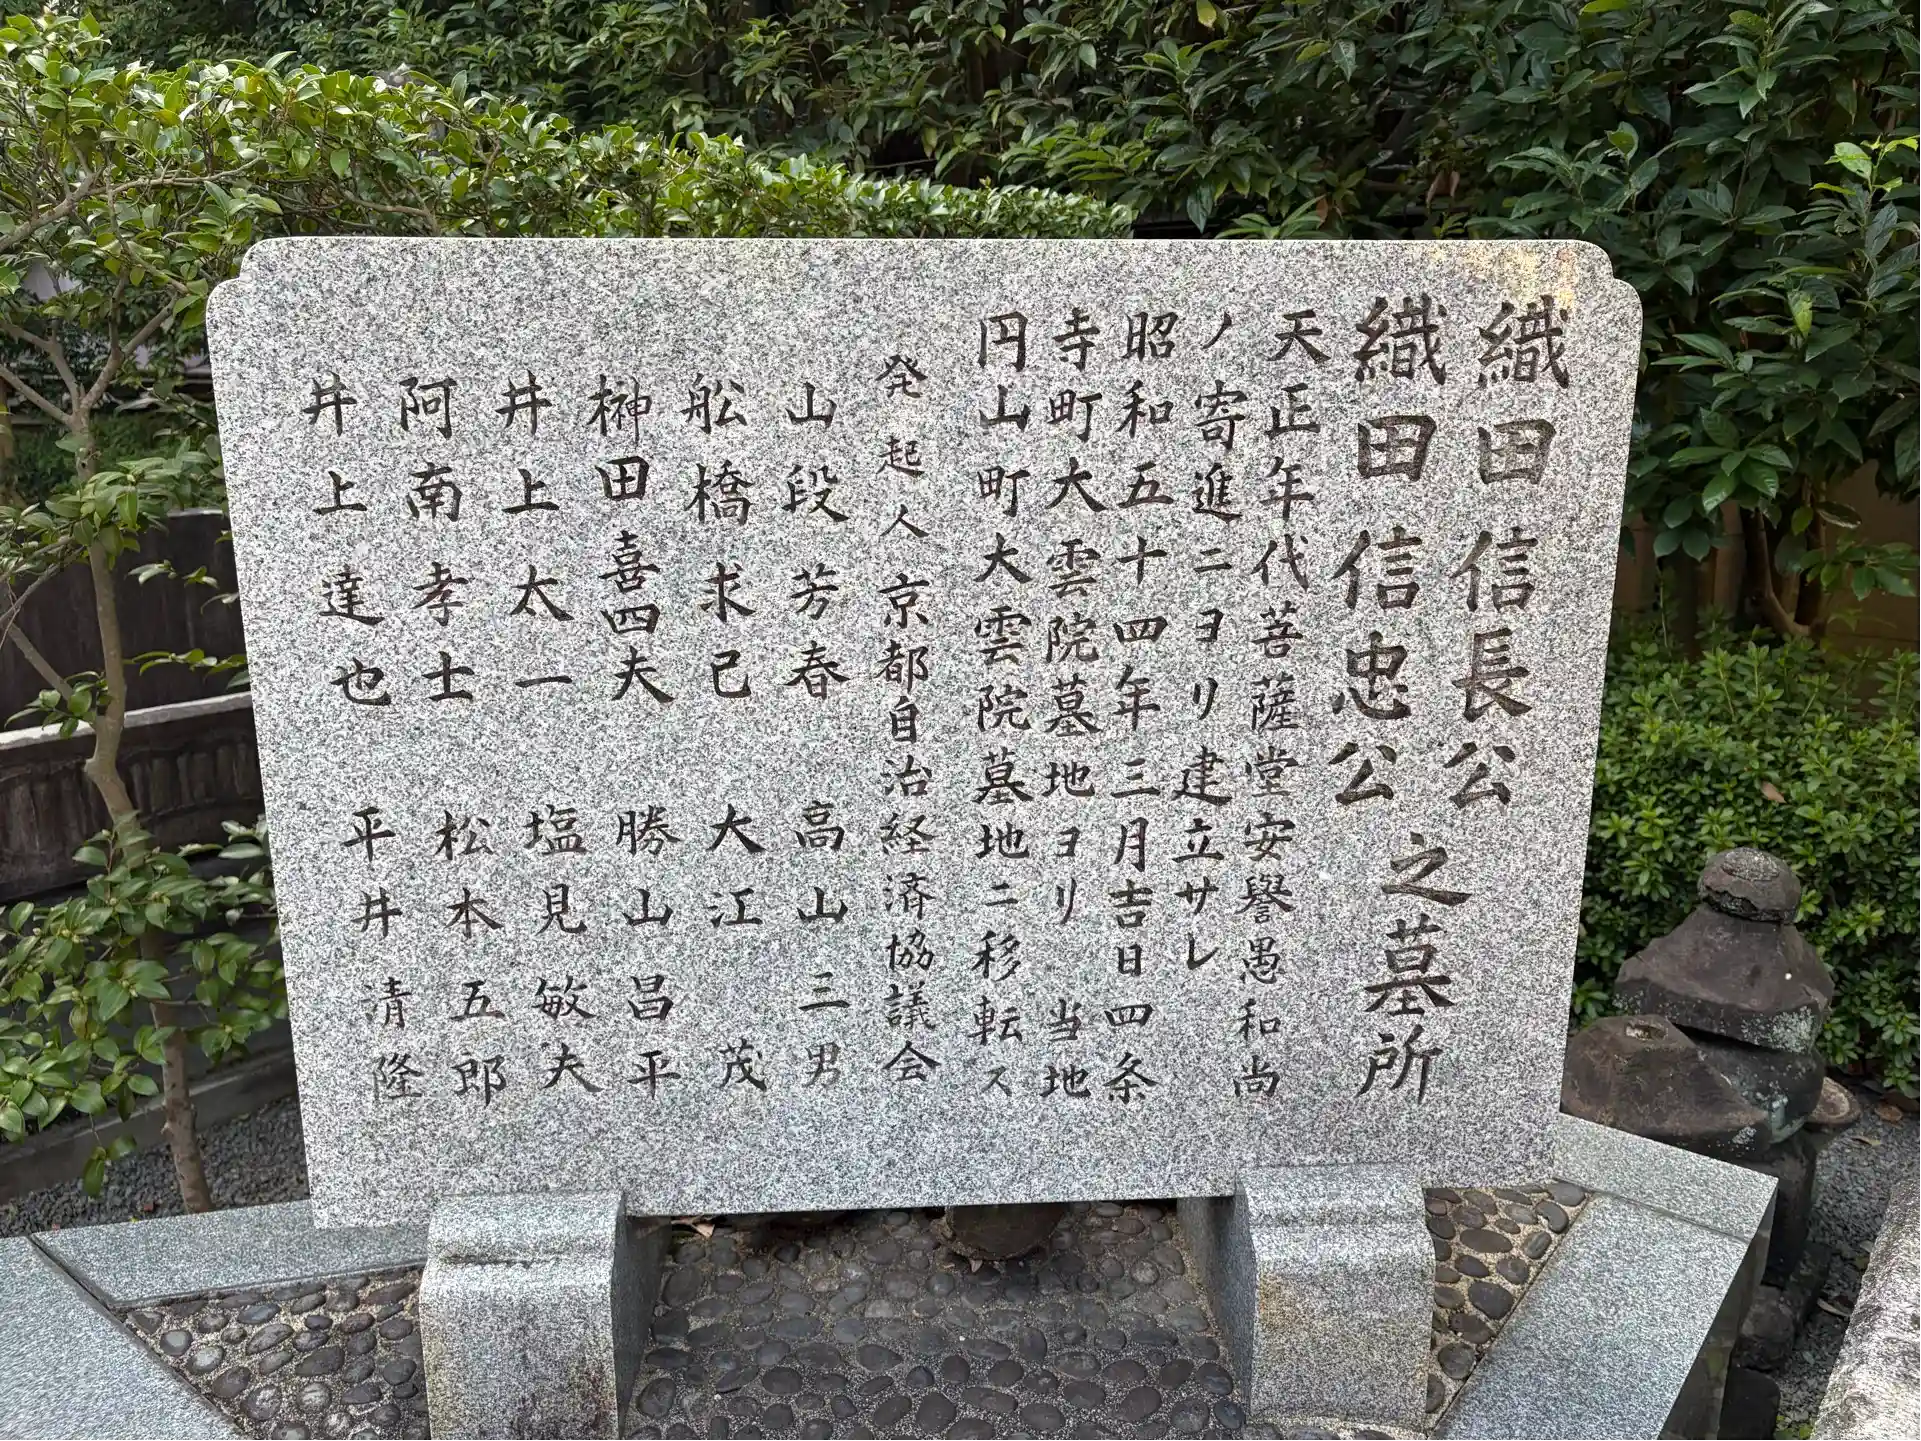 織田信長公
織田信忠公
之墓所
天正年代菩薩堂安譽愚和尚
ノ寄進ニヨリ建立サレ
昭和五十四年三月吉日四条
寺町大雲院墓地ヨリ当地
円山町大雲院墓地ニ移転ス
発起人京都自治経済協議会
山段芳春 高山三男
舩橋求己 大江茂
榊田喜四夫 勝山昌平
井上太一 塩見敏夫
阿南孝士 松本五郎
井上達也 平井清隆